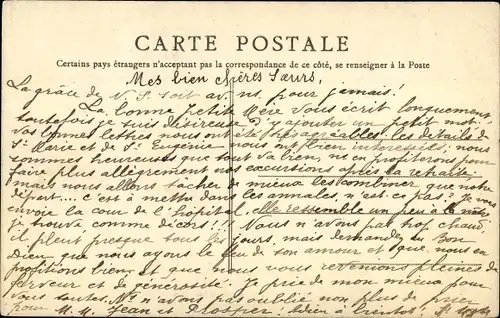 CARTE POSTALE
Certains pays étrangers n'acceptant pas la correspondance de ce côté, se renseigner à la Poste
Mes bien chères Sœurs,
La grâce de N. S. soit av. ns. pour jamais!
La bonne petite Mère vous écrit longuement,
toutefois je suis désireuse d'y ajouter un petit mot.
Vos bonnes lettres nous ont été très agréables; les détails de
St Marie et de St Eugénie nous ont bien intéressés; nous
sommes heureuses que tout va bien, ns en profiterons pour
faire plus allègrement nos excursions après la retraite;
mais nous allons tâcher de mieux les combiner que notre
départ.... c'est à mettre dans les annales, n'est-ce pas? Je vous
envoie la cour de l'hôpital, elle ressemble un peu à la nôtre
je trouve comme décors!! Nous n'avons pas trop chaud,
il pleut presque tous les jours, mais demandez au Bon
Dieu que nous ayons le feu de son amour et que nous en
profitions bien et que nous vous revenions pleines de
ferveur et de générosité. Je prie de mon mieux pour
vous toutes. Ns n'avons pas oublié non plus de prier
pour M. M. Jean et Prosper. Adieu à bientôt.